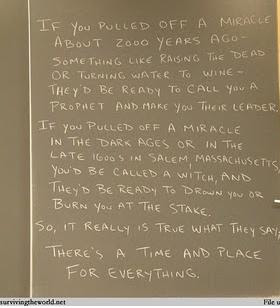 IF YOU PULLED OFF A MIRACLE
ABOUT 2000 YEARS AGO-
SOMETHING LIKE RAISING THE DEAD
OR TURNING WATER TO WINE-
THEY'D BE READY TO CALL YOU A
PROPHET AND MAKE YOU THEIR LEADER.
IF YOU PULLED OFF A MIRACLE
IN THE DARK AGES OR IN THE
LATE 1600S IN SALEM, MASSACHUSETTS,
YOU'D BE CALLED A WITCH, AND
THEY'D BE READY TO DROWN YOU OR
BURN YOU AT THE STAKE.
SO, IT REALLY IS TRUE WHAT THEY SAY;
THERE'S A TIME AND PLACE
FOR EVERYTHING.
survivingtheworld.net
File u